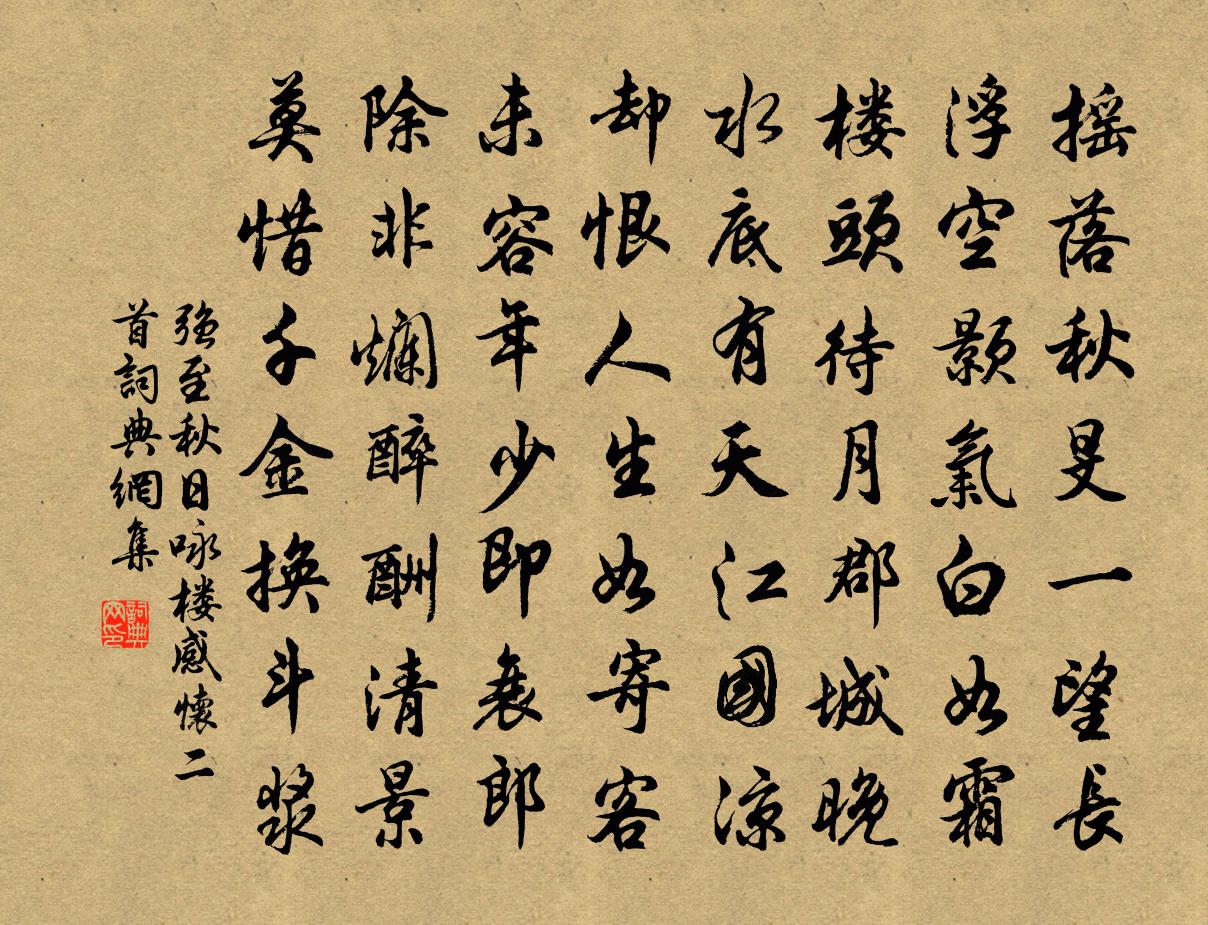 摇落秋旻一望長
浮空顥氣白如霜
楼頭待月郡城晚
水底有天江國涼
却恨人生如寄客
未容年少即衰郎
除非爛醉酬清景
莫惜千金換斗漿
强至秋日咏楼感懷二
首詞典網集
詞典
网印